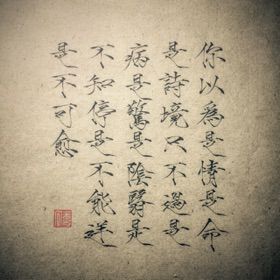 你以為是情是命
是詩境只不過是
病是驚是陰翳是
不知停是不能
是不可愈